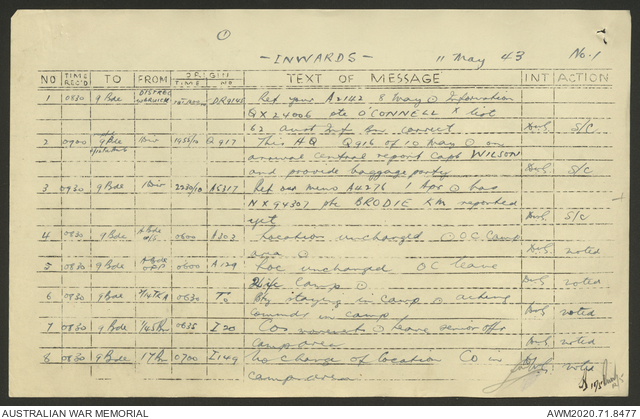 ①
— INWARDS —   11 May 43   No. 1
NO TIME REC'D TO FROM ORIGIN TIME NO TEXT OF MESSAGE INT ACTION
1 0830 9 Bde DISTREC WARWICK DR9145 Ref your A2142 8 May ⊙ Information
QX 24006 pte O'CONNELL K list
62 aust Inf Bn correct S/C
2 0900 9 Bde 1 Div 1955/10 Q917 This HQ Q916 of 10 May ⊙ on
arrival central report Capt WILSON
and provide baggage party S/C
3 0930 9 Bde 1 Div 2230/10 Ref our mens A4276 1 Apr ⊙ has
NX 94307 pte BRODIE KM reported
yet S/C
4 0830 9 Bde 0600 A303 Location unchanged ⊙ O.C. Camp
area ⊙ noted
5 0830 9 Bde 0600 A129 Loc unchanged OC leave
Camp ⊙ noted
6 0830 9 Bde 0630 Bty staying in camp ⊙ acting
comnds in camp noted
7 0830 9 Bde 1/45 Bn 0635 I20 Cos ⊙ leave senior offr
camp area noted
8 0830 9 Bde 17 Bn 0700 I149 No change of location Co in
camp area noted
AUSTRALIAN WAR MEMORIAL   AWM2020.71.8477